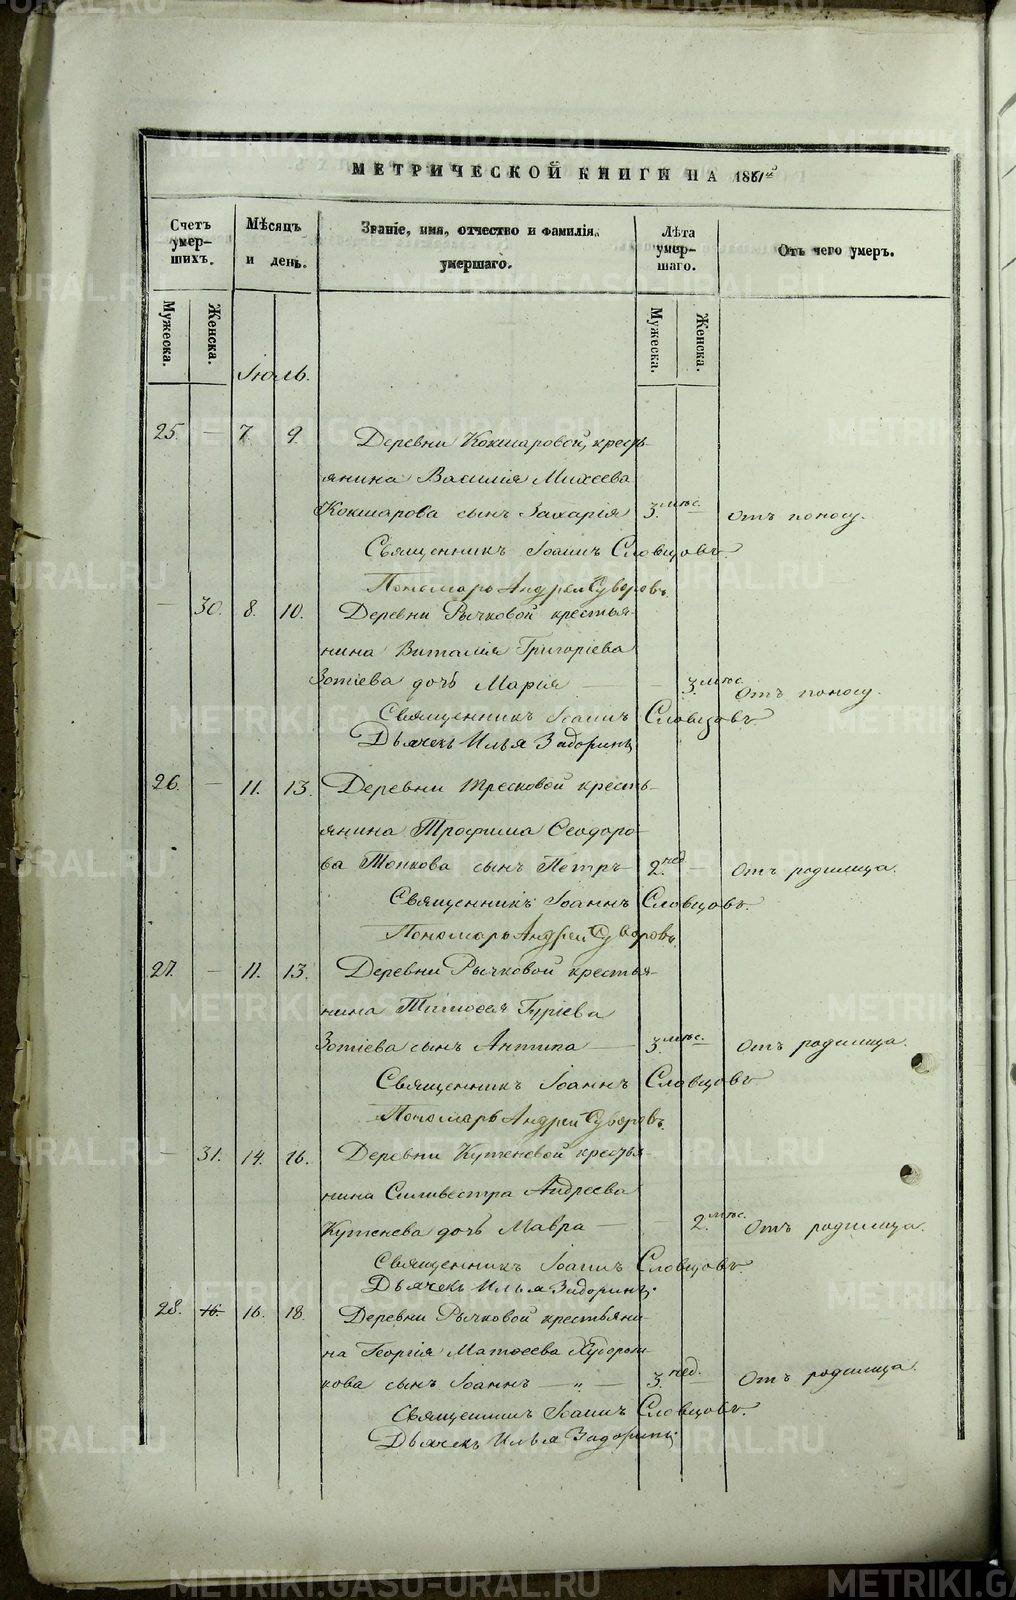 МЕТРИЧЕСКОЙ КНИГИ НА 1861й
Счетъ умер-шихъ. Мѣсяцъ и день. Званіе, имя, отчество и фамилія умершаго. Лѣта умер-шаго. Отъ чего умеръ.
Мужеска. Женска. Мужеска. Женска.
Іюль.
25. — 7 9. Деревни Кокшаровой, кресть-
янина Василія Михеева
Кокшарова сынъ Захарія 3. мѣс. — отъ поносу.
Священникъ Іоаннъ Словцовъ
Пономарь Андрей Суворовъ.
— 30. 8. 10. Деревни Рычковой крестья-
нина Виталія Григоріева
Зотіева дочь Марія — — 3. мѣс. отъ поносу.
Священникъ Іоаннъ Словцовъ
Дьячекъ Илья Задоринъ
26. — 11. 13. Деревни Тресковой кресть-
янина Трофима Ѳеодоро-
ва Тонкова сынъ Петръ 2. нед. — Отъ родимца.
Священникъ Іоаннъ Словцовъ.
Пономарь Андрей Суворовъ.
27. — 11. 13. Деревни Рычковой крестья-
нина Тимоѳея Гуріева
Зотіева сынъ Антипа — 3. мѣс. — Отъ родимца.
Священникъ Іоаннъ Словцовъ
Пономарь Андрей Суворовъ.
— 31. 14. 16. Деревни Кутеневой крестья-
нина Сильвестра Андреева
Кутенева дочь Мавра — — 2. мѣс. Отъ родимца.
Священникъ Іоаннъ Словцовъ.
Дьячекъ Илья Задоринъ.
28. 16. 16. 18. Деревни Рычковой крестьяни-
на Георгія Матѳеева
кова сынъ Іоаннъ — „ — 3. нед. — Отъ родимца.
Священникъ Іоаннъ Словцовъ.
Дьячекъ Илья Задоринъ.
METRIKI.GASO-URAL.RU